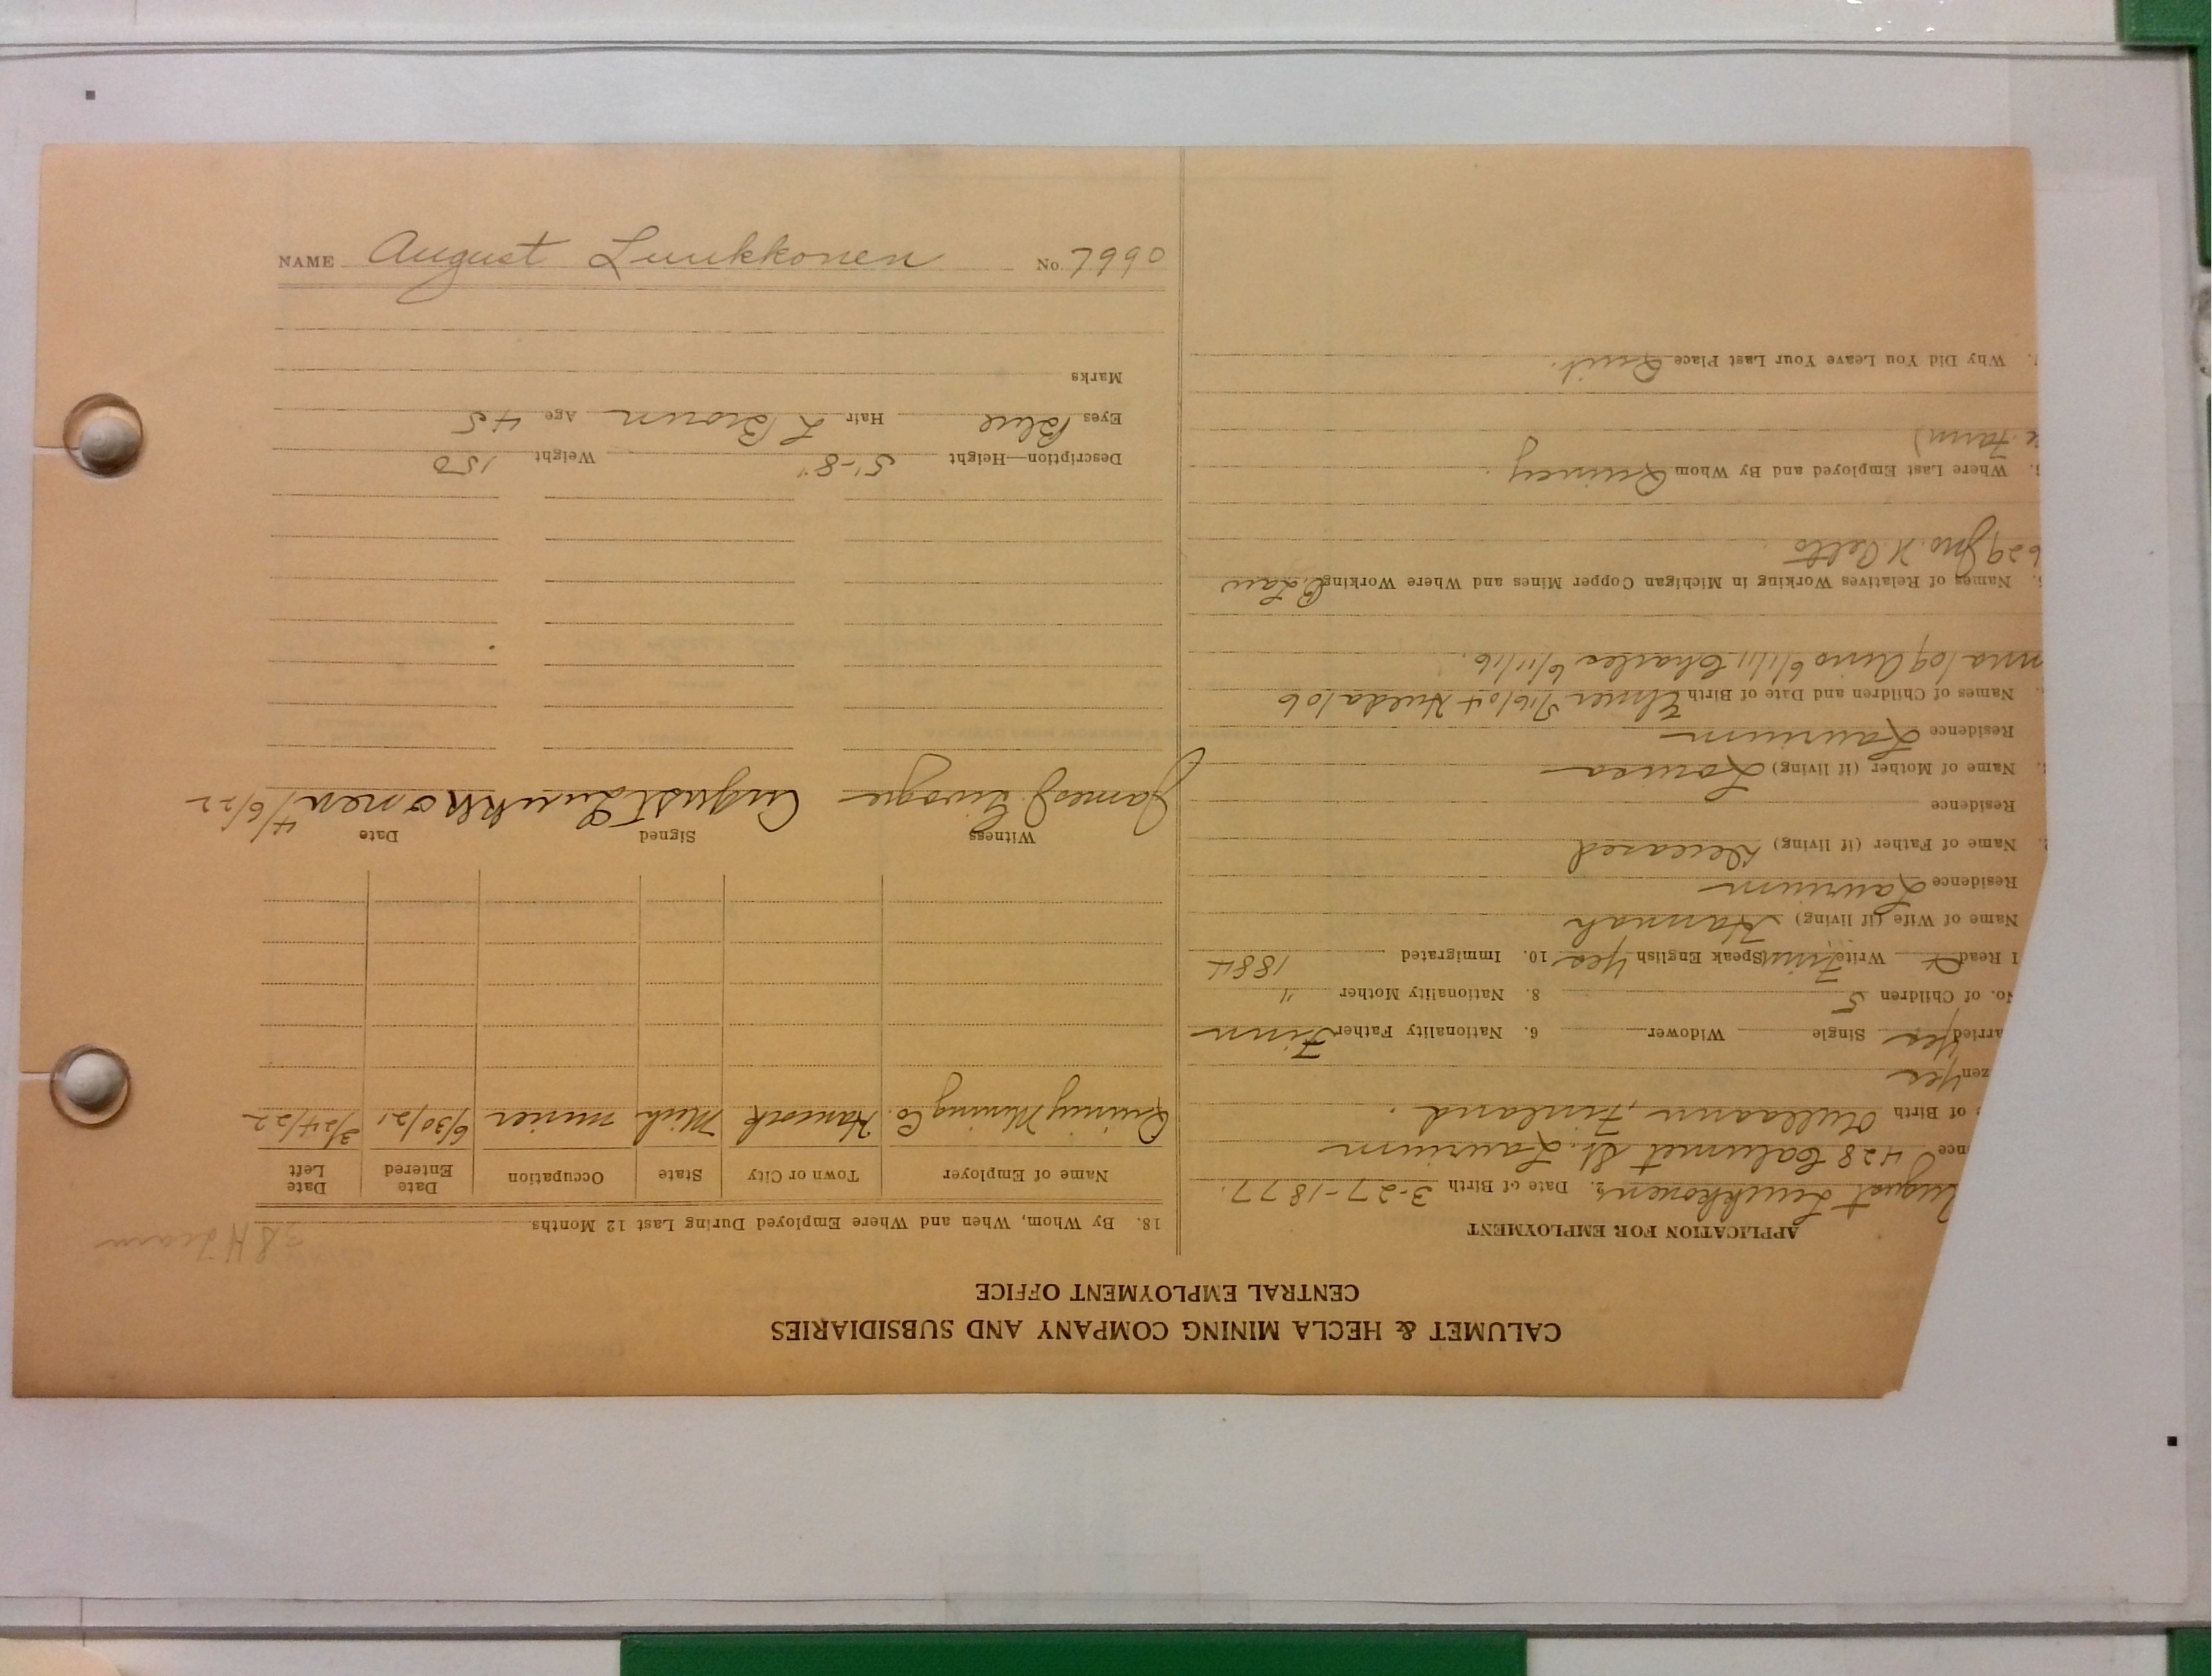 NAME August Luukkonen No. 7990
CALUMET & HECLA MINING COMPANY AND SUBSIDIARIES
CENTRAL EMPLOYMENT OFFICE
APPLICATION FOR EMPLOYMENT
August Luukkonen 2. Date of Birth 3-27-1877.
nce 428 Calumet St. Laurium
of Birth Finland.
zen Yes
arried Yes Single Widower 6. Nationality Father Finn
No. of Children 5 8. Nationality Mother "
I Read Write Finn Speak English Yes 10. Immigrated 1884
Name of Wife (if living) Hannah
Residence Laurium
Name of Father (if living) Deceased
Residence
Name of Mother (if living) Lousea
Residence Laurium
Names of Children and Date of Birth Elmer 5/16/04 Hulda/06
nna/09 Arvo 6/1/11 Charles 6/11/16.
Names of Relatives Working in Michigan Copper Mines and Where Working B. Law
629 Jno. H.
Where Last Employed and By Whom Quincy.
farm)
Why Did You Leave Your Last Place Quit.
18. By Whom, When and Where Employed During Last 12 Months
Name of Employer Town or City State Occupation Date Entered Date Left
Quincy Mining Co. Hancock Mich miner 6/30/21 3/24/22
Witness Signed Date
James J. August Luukkonen 4/6/22
Description—Height 5'-8" Weight 150
Eyes Blue Hair L Brown Age 45
Marks